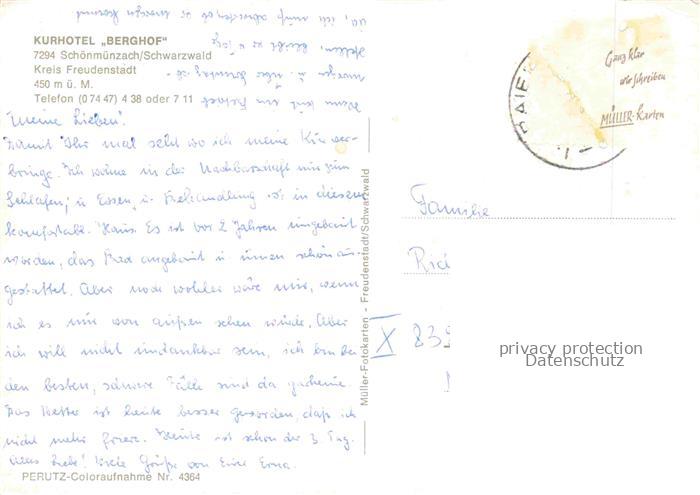 KURHOTEL „BERGHOF“
7294 Schönmünzach/Schwarzwald
Kreis Freudenstadt
450 m ü. M.
Telefon (0 74 47) 4 38 oder 7 11
Meine Lieben!
Damit Ihr mal seht wo ich meine Kur ver-
bringe. Ich wohne in der Nachbarschaft nur zum
Schlafen, u. Essen u. Behandlung ist in diesem
komfortabl. Haus. Es ist vor 2 Jahren umgebaut
worden, das Bad angebaut u. innen schön aus-
gestattet. Aber noch wohler wäre mir, wenn
ich es nur von außen sehen würde. Aber
ich will nicht undankbar sein, ich bin bei
den besten, schwere Fälle sind da
Das Wetter ist heute besser geworden, daß ich
nicht mehr friere. Heute ist schon der 3. Tag.
Alles Liebe! Viele Grüße von Eurer Erna.
PERUTZ-Coloraufnahme Nr. 4364
Müller-Fotokarten - Freudenstadt/Schwarzwald
Ganz klar
wir schreiben
MÜLLER-Karten
Familie
X 839
privacy protection
Datenschutz